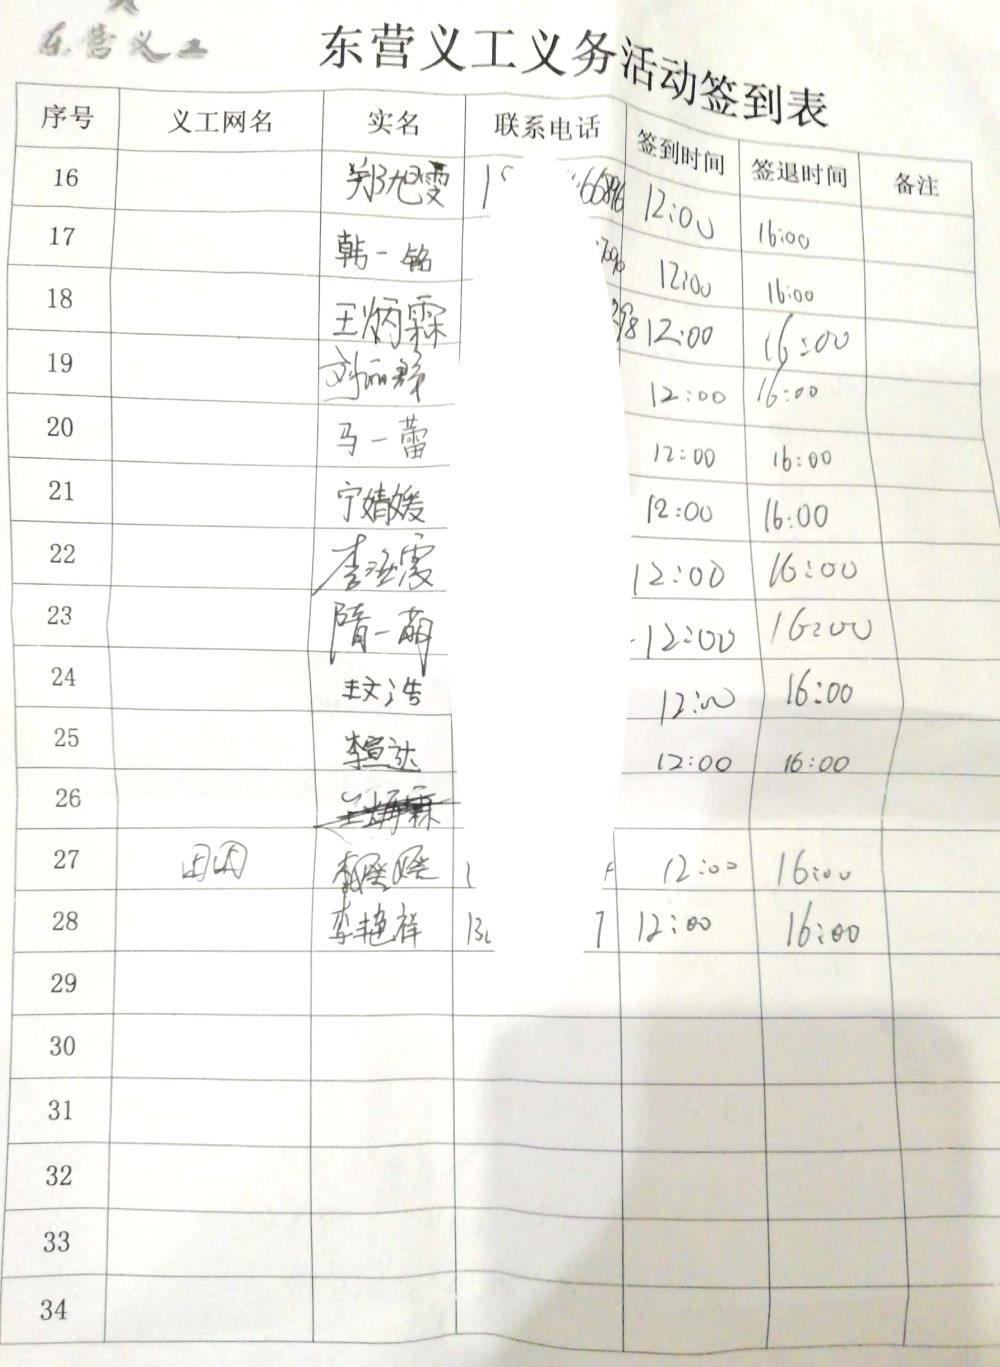 东营义工
东营义工义务活动签到表
序号 义工网名 实名 联系电话 签到时间 签退时间 备注
16 郑旭雯 1 66896 12:00 16:00
17 韩一铭 12:00 16:00
18 王炳霖 12:00 16:00
19 刘丽 12:00 16:00
20 马一蕾 12:00 16:00
21 宁婧媛 12:00 16:00
22 李 霞 12:00 16:00
23 隋一萌 12:00 16:00
24 王文浩 12:00 16:00
25 李宣达 12:00 16:00
26
27 12:00 16:00
28 李艳祥 13 7 12:00 16:00
29
30
31
32
33
34